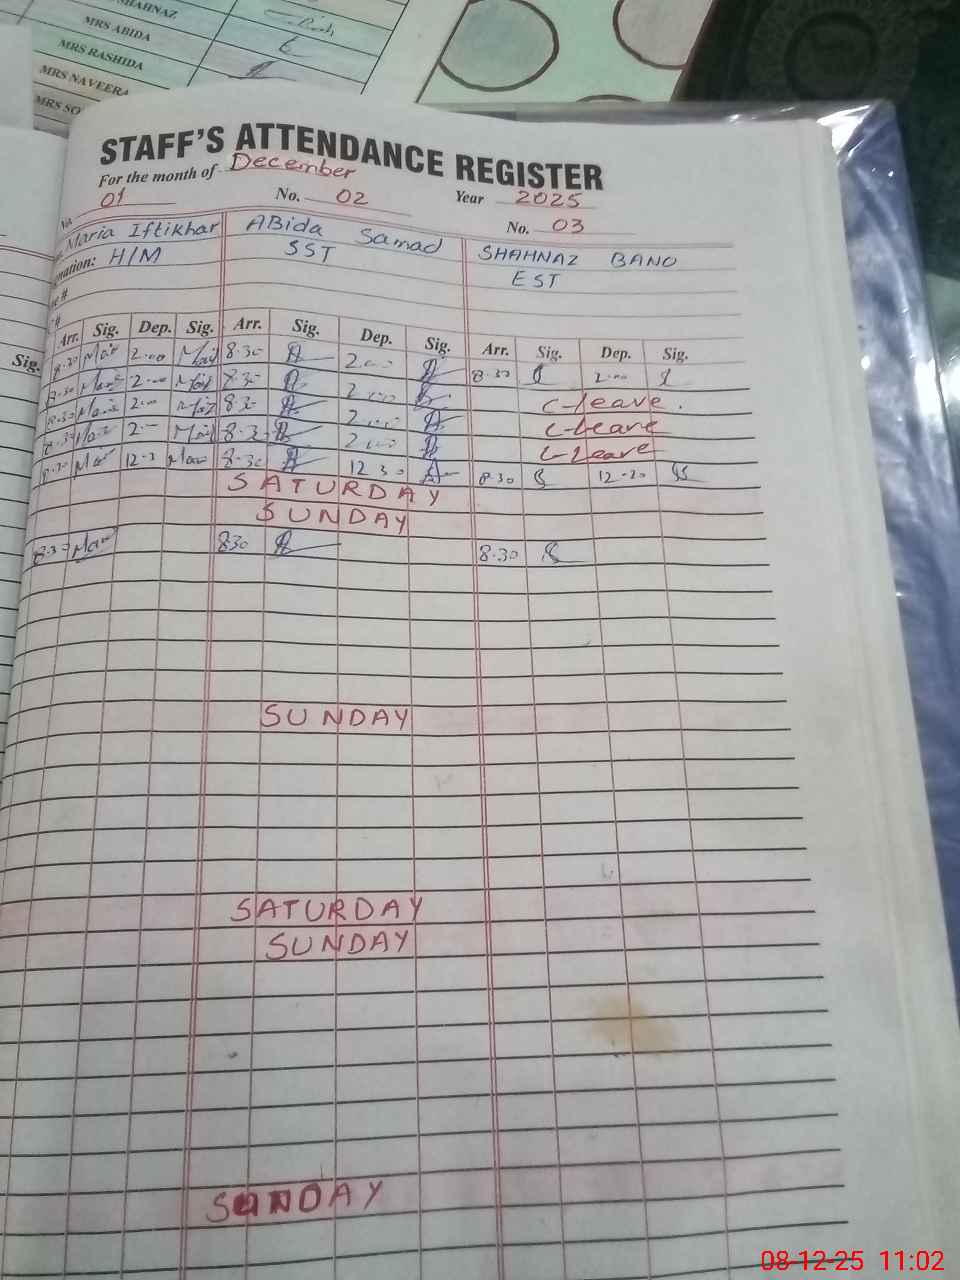 SHAHNAZ
MRS ABIDA
MRS RASHIDA
MRS NAVEERA
MRS SO
STAFF'S ATTENDANCE REGISTER
For the month of December
No. 01 No. 02 Year 2025
No. 03
Maria Iftikhar ABida Samad SHAHNAZ BANO
nation: H/M SST EST
Sig. Arr. Sig. Dep. Sig. Arr. Sig. Dep. Sig. Arr. Sig. Dep. Sig.
8.30 2.00 8.30 2.00 8.30 2.00
8.30 2.00 8.30 2.00 C-leave.
8.30 2.00 8.30 2.00 C-leave
8.30 2.00 8.30 2.00 C-leave
8.30 12.3 8.30 12 30 8.30 12-30
SATURDAY
SUNDAY
8.30 830 8.30
SUNDAY
SATURDAY
SUNDAY
SUNDAY
08-12-25 11:02